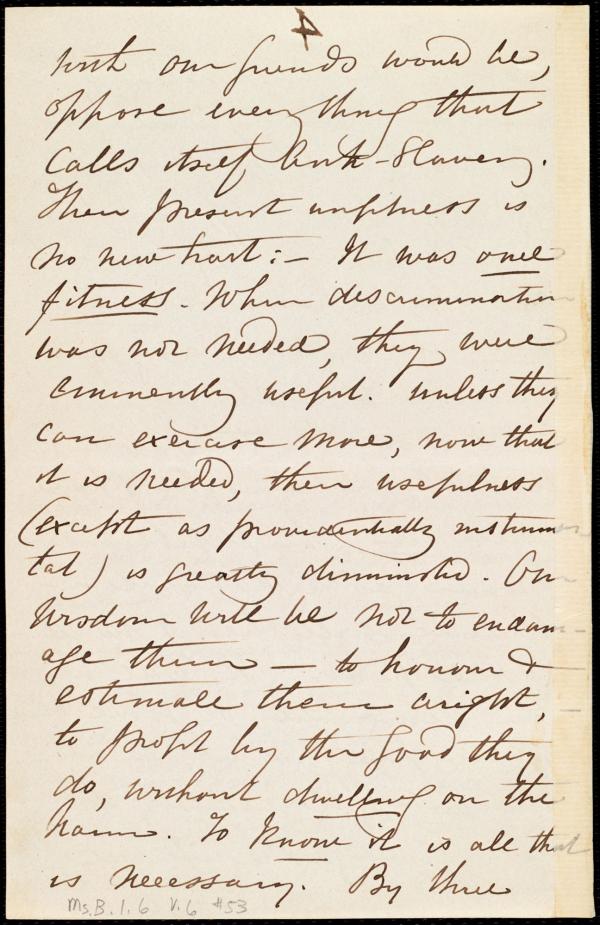 4
with our friends would be,
oppose everything that
calls itself Anti-Slavery.
Their present unfitness is
no new trait:– It was once
fitness. When discrimination
was not needed, they were
eminently useful. unless they
can exercise more, now that
it is needed, their usefulness
(except as providentially instrumen
tal) is greatly diminished. Our
wisdom will be not to endam-
age them — to honour &
estimate them aright,
to profit by the good they
do, without dwelling on the
harm. To know it is all that
is necessary. By three
Ms.B.1.6 V.6 #53